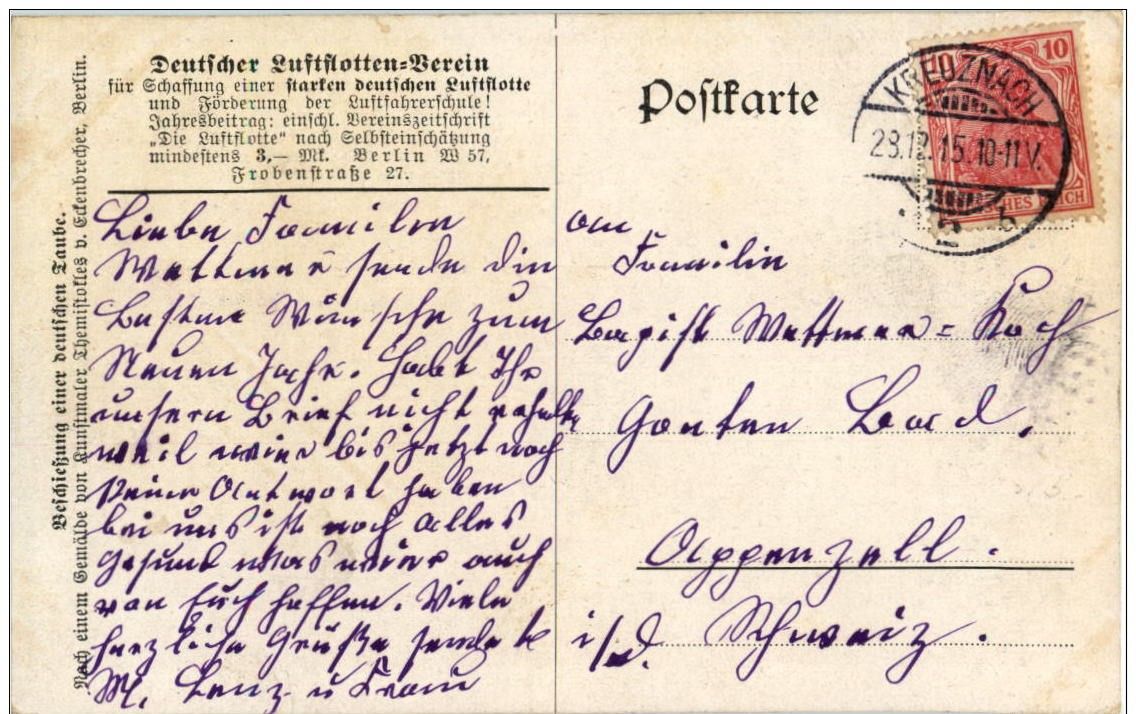 Deutscher Luftflotten-Verein
für Schaffung einer starken deutschen Luftflotte
und Förderung der Luftfahrerschule!
Jahresbeitrag: einschl. Vereinszeitschrift
„Die Luftflotte" nach Selbsteinschätzung
mindestens 3,— Mk. Berlin W 57,
Frobenstraße 27.
Beschießung einer deutschen Taube.
Nach einem Gemälde von Kunstmaler Themistokles v. Eckenbrecher, Berlin.
Liebe Familien
sende die
Besten Wünsche zum
Neuen Jahr. Habt Ihr
unsern Brief nicht erhalten
weil wier bis jetzt noch
keine Antwort haben
bei uns ist noch alles
Gesund was wier auch
von Euch hoffen. Viele
herzliche Grüße sendet
M. Lenz u Frau
Postkarte
KREUZNACH
28.12.15.10-11V.
2 b
10
DEUTSCHES REICH
an
Familie
Koch
Gonten Bad.
Appenzell.
i/d. Schweiz.